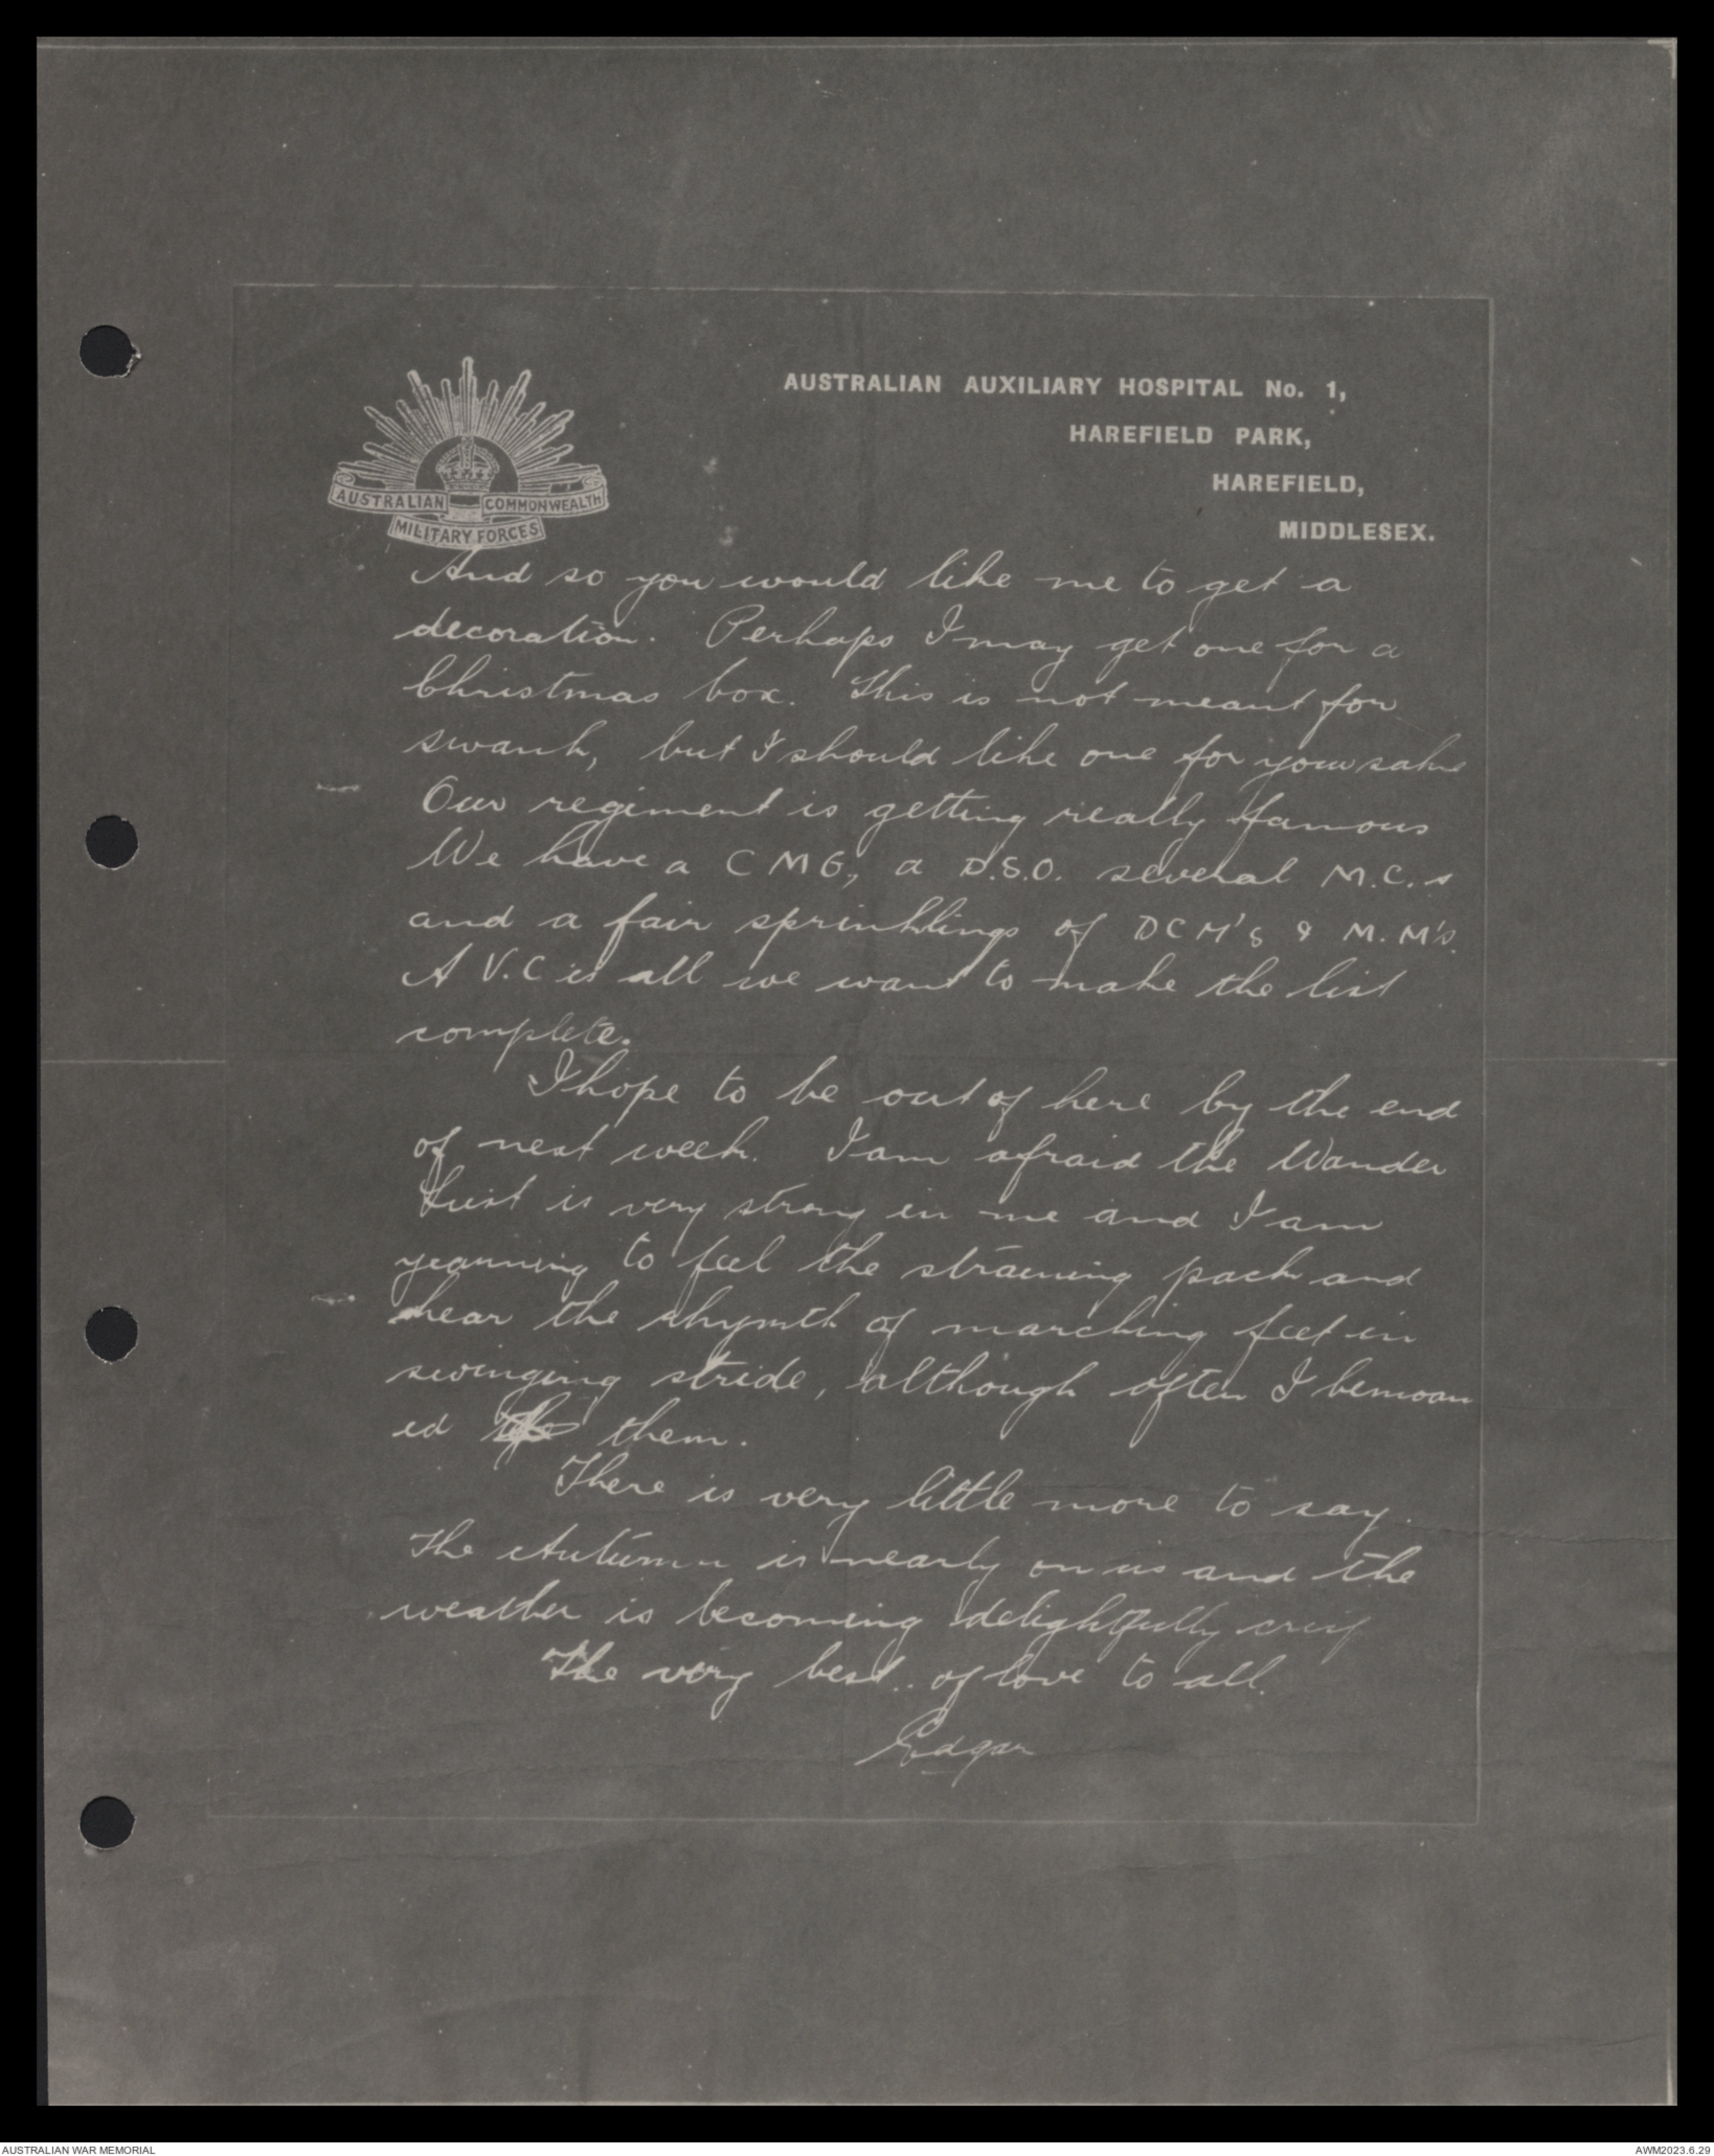 AUSTRALIAN AUXILIARY HOSPITAL No. 1,
HAREFIELD PARK,
HAREFIELD,
MIDDLESEX.
AUSTRALIAN COMMONWEALTH
MILITARY FORCES
And so you would like me to get a
decoration. Perhaps I may get one for a
Christmas box. This is not meant for
swank, but I should like one for your sake
Our regiment is getting really famous
We have a CMG, a D.S.O. several M.C.s
and a fair sprinklings of DCM's & M.M's.
A V.C is all we want to make the list
complete.
I hope to be out of here by the end
of next week. I am afraid the Wander
lust is very strong in me and I am
yearning to feel the straining pack and
hear the rhymth of marching feet in
swinging stride, although often I bemoan
ed them.
There is very little more to say.
The Autumn is nearly on us and the
weather is becoming delightfully crisp
The very best of love to all.
Edgar
AUSTRALIAN WAR MEMORIAL
AWM2023.6.29